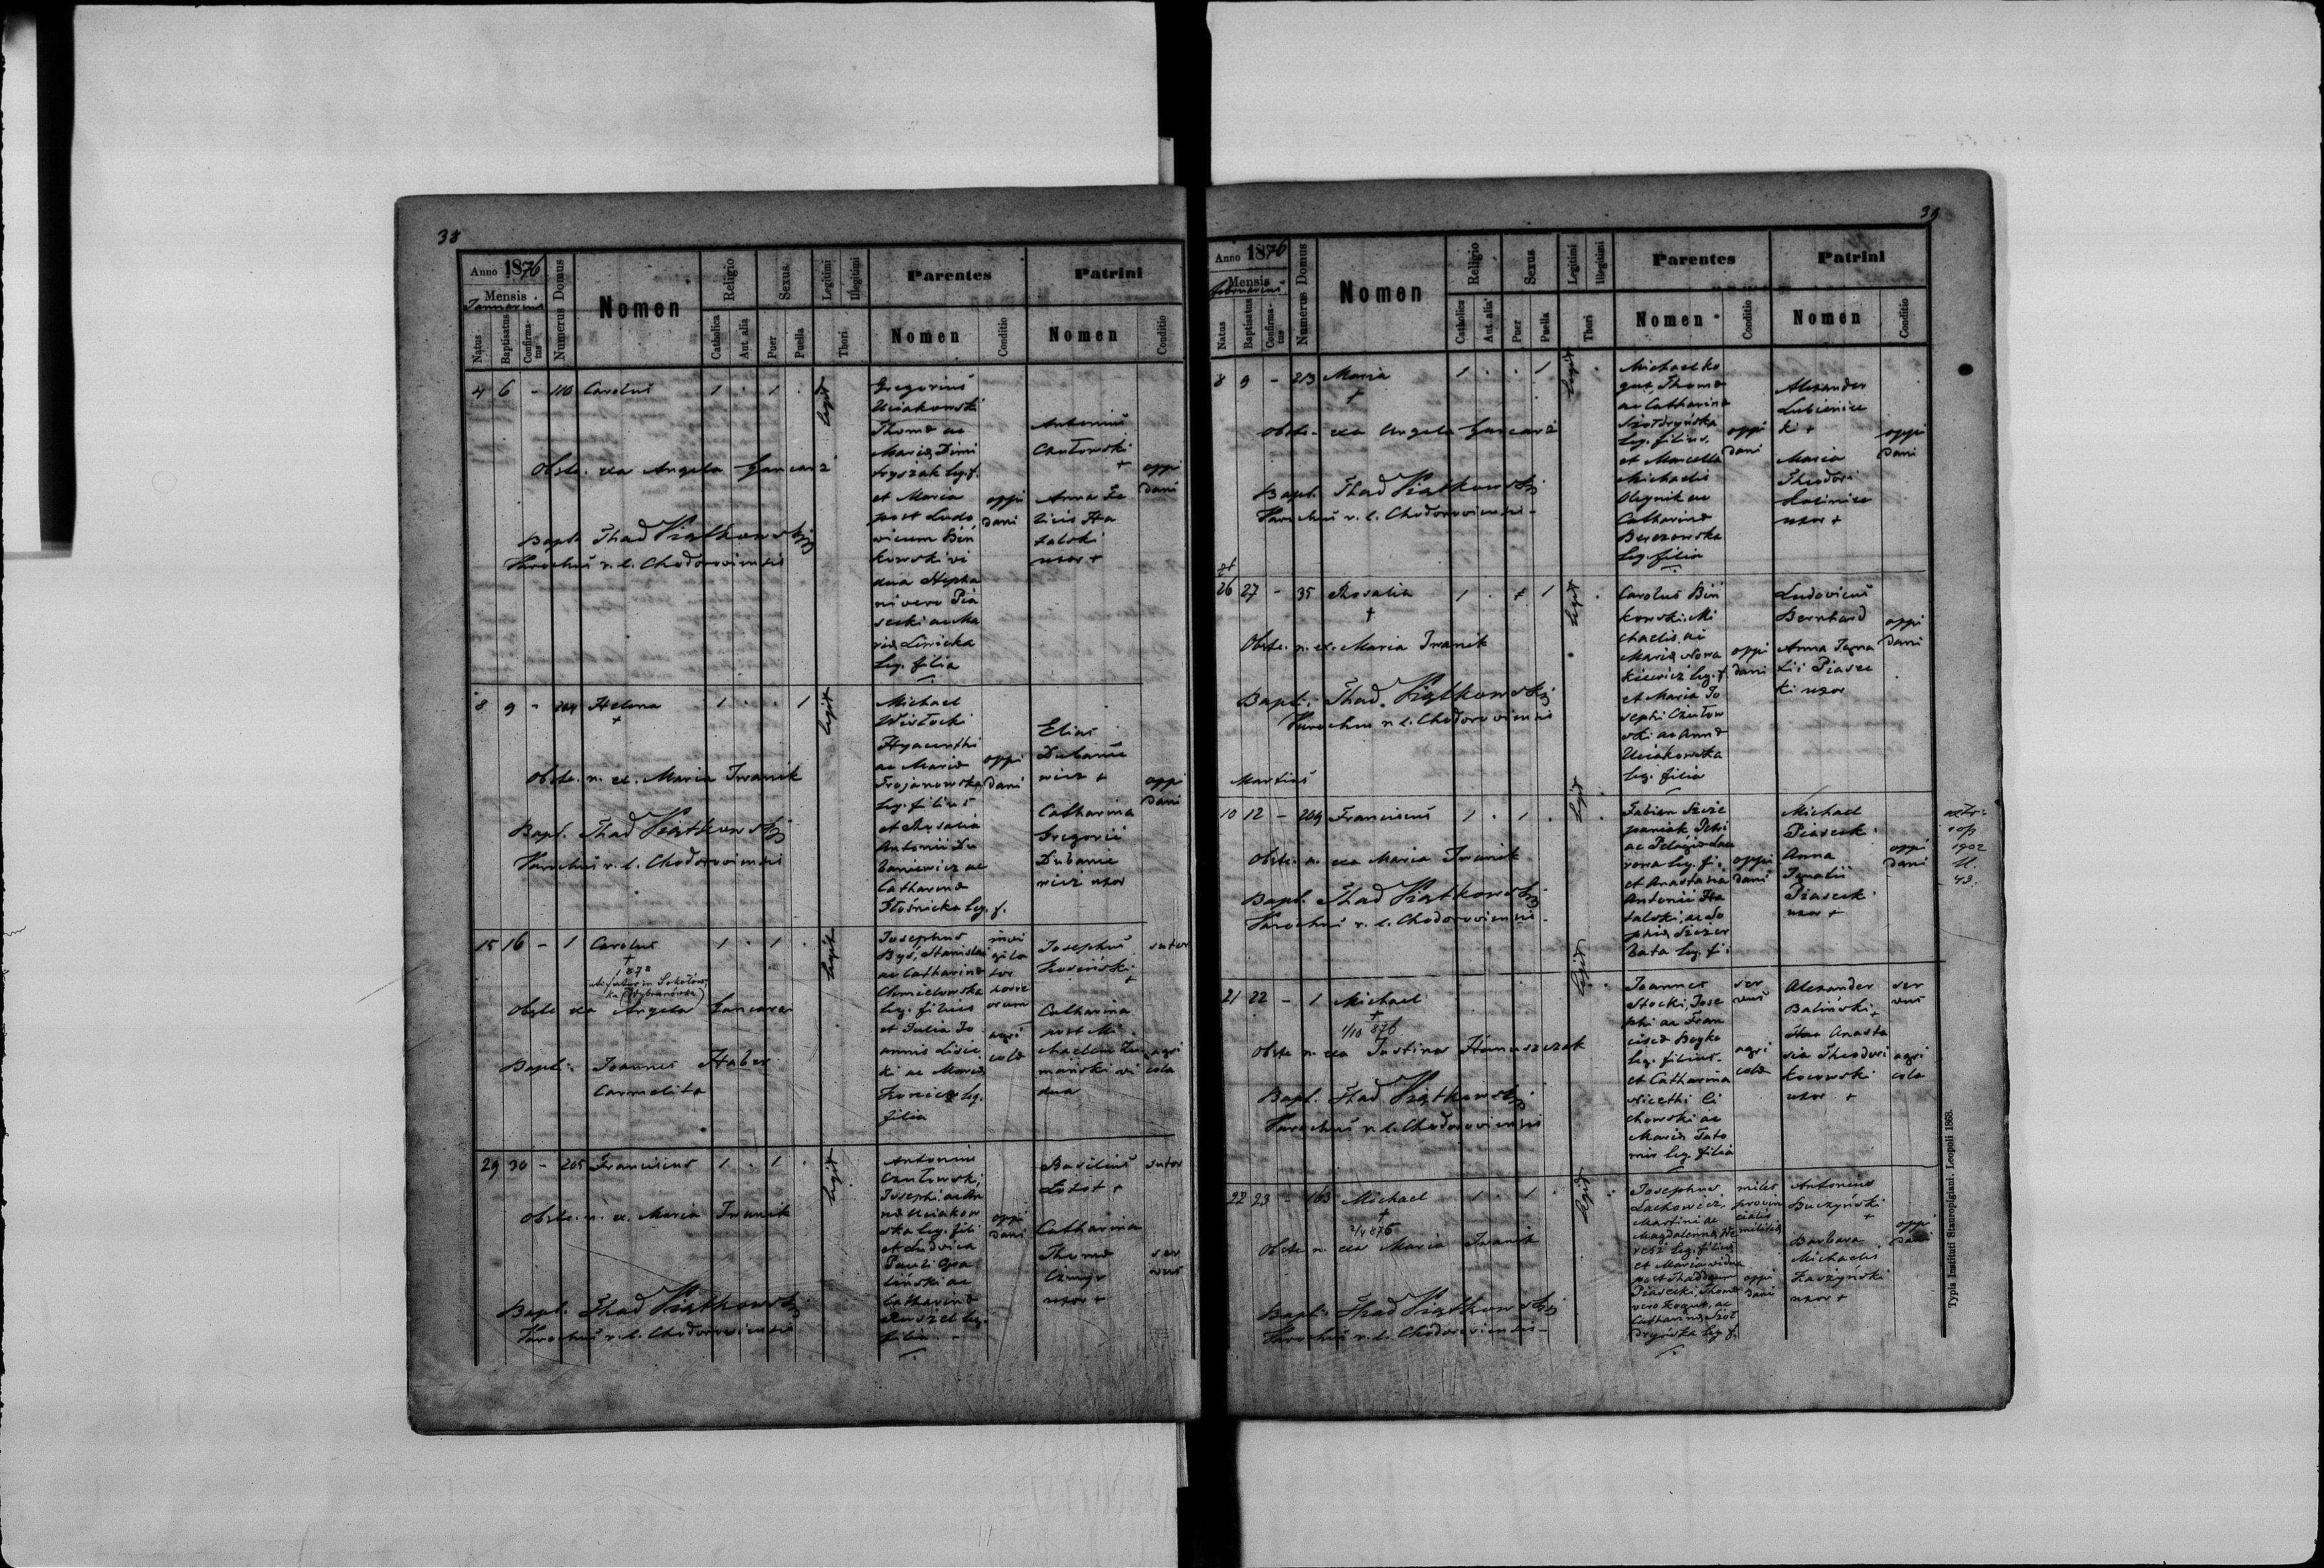 38
Anno 1876
Mensis
Januarius
Natus
Baptisatus
Confirma-
tus
Numerus Domus
Nomen
Religio
Catholica
Aut. alia
Sexus
Puer
Puella
Legitimi
Illegitimi
Thori
Parentes
Nomen
Conditio
Patrini
Nomen
Conditio
4 6 - 110 Carolus 1 . 1 .
Obste. exa Angela Gancarz
Bapt. Thad Piątkowski
Parochus r. l. Chodoroviensis
Gregorius
Uciakowski
Thoma ac
Maria Dimi
tryszak leg. f.
et Maria
post Ludo
vicum Biń
kowski vi
dua Stepha
ni vero Pia
secki ac Ma
ria Lewicka
leg. filia
oppi
dani
Antonius
Czułowski
+
Anna Fe
licis Ha
talski
uxor +
oppi
dani
8 9 - 204 Helena 1 . . 1
+
Obste. n. ex. Maria Iwanik
Bapt. Thad Piątkowski
Parochus r. l. Chodoroviensis
Michael
Wisłocki
Hyacinthi
ac Maria
Trojanowska
leg. filius
et Rosalia
Antonii Du
baniewicz ac
Catharina
Głośnicka leg. f.
oppi
dani
Elias
Dubanie
wicz +
Catharina
Gregorii
Dubanie
wicz uxor
oppi
dani
15 16 - 1 Carolus 1 . 1 .
+
Obste exa Angela Gancarz
Bapt. Joannes Haber
Carmelita
Josephus
Byś, Stanislai
ac Catharina
Chmielowska
leg. filius
et Julia Jo
annis Lisie
ki ac Maria
leg.
filia
invi
gila
tor
agri
cola
Josephus
+
Catharina
post Mi
chaelem
mański vi
dua
sutor
agri
cola
29 30 - 205 Franciscus 1 . 1 .
Obste. n. ex. Maria Iwanik
Bapt. Thad Piątkowski
Parochus r. l. Chodoroviensis
Antonius
Czułowski,
Josephi ac An
na Uciakow
ska leg. fili
et Ludvica
Pauli Opa
liński ac
Catharina
leg.
filia.
oppi
dani
Basilius
+
Catharina
Thoma
uxor +
sutor
ser
vus
39
Anno 1876
Mensis
februarius
Natus
Baptisatus
Confirma-
tus
Numerus Domus
Nomen
Religio
Catholica
Aut. alia
Sexus
Puer
Puella
Legitimi
Illegitimi
Thori
Parentes
Nomen
Conditio
Patrini
Nomen
Conditio
8 9 - 213 Maria 1 . . 1
+
Obste. exa Angela Gancarz
Bapt. Thad Piątkowski
Parochus r. l. Chodoroviensis
Michael Ko
gut, Thoma
ac Catharina
Szołdryńska
leg. filius,
et Marcella
Michaelis
Oleynik ac
Catharina
Berezowska
leg. filia
oppi
dani
Alexander
Lubieniec
ki +
Maria
Theodori
uxor +
oppi
dani
26 27 - 35 Rosalia 1 . 1
+
Obste. n. ex. Maria Iwanik
Bapt. Thad. Piątkowski
Parochus r. l. Chodoroviensis
Carolus Biń
kowski Mi
chaelis ac
Maria Nowa
kiewicz leg. f.
et Maria Jo
sephi Czułow
ski ac Anna
Uciakowska
leg. filia
oppi
dani
Ludovicus
Bernhard
Anna Igna
tii Piasec
ki uxor
oppi
dani
Martius
10 12 - 209 Franciscus 1 . 1 .
Obste. n. exa Maria Iwanik
Bapt. Thad Piątkowski
Parochus r. l. Chodoroviensis
Fabian Szcze
paniak Petri
ac Pelagia
leg. f.
et Anastasia
Antonii Ha
talski, ac So
phia Szczer
bata leg. fi:
oppi
dani
Michael
Piasecki
Anna
Ignatii
Piasecki
uxor +
oppi
dani
1902
43.
21 22 - 1 Michael
+
1/10 876
Obste n. exa Justina Hanuszczak
Bapt. Thad Piątkowski
Parochus r. l. Chodoroviensis
Joannes
Stocki, Jose
phi ac Fran
cisca Boyko
leg. filius.
et Catharina
Nicethi Ci
chowski ac
Maria Tato
mir leg. filia
ser
vus
agri
cola
Alexander
Baliński
+
Anasta
sia Theodori
Kocowski
uxor +
ser
vus
agri
cola
22 23 - 163 Michael 1 . 1 .
+
2/4 876
Obste n. exa Maria Iwanik
Bapt. Thad Piątkowski
Parochus r. l. Chodoroviensis
Josephus
Lachowicz,
Martini ac
Magdalena
leg. filius
et Maria vidua
post Thaddaeum
Piasecki, Thoma
vero Kogut, ac
Catharina Szoł
dryńska leg. f.
miles
provin
cialis
militia
oppi
dani
Antonius
Buczyński
+
Barbara
Michaelis
Kaszyński
uxor +
oppi
dani
Typis Instituti Stauropigiani. Leopoli 1868.